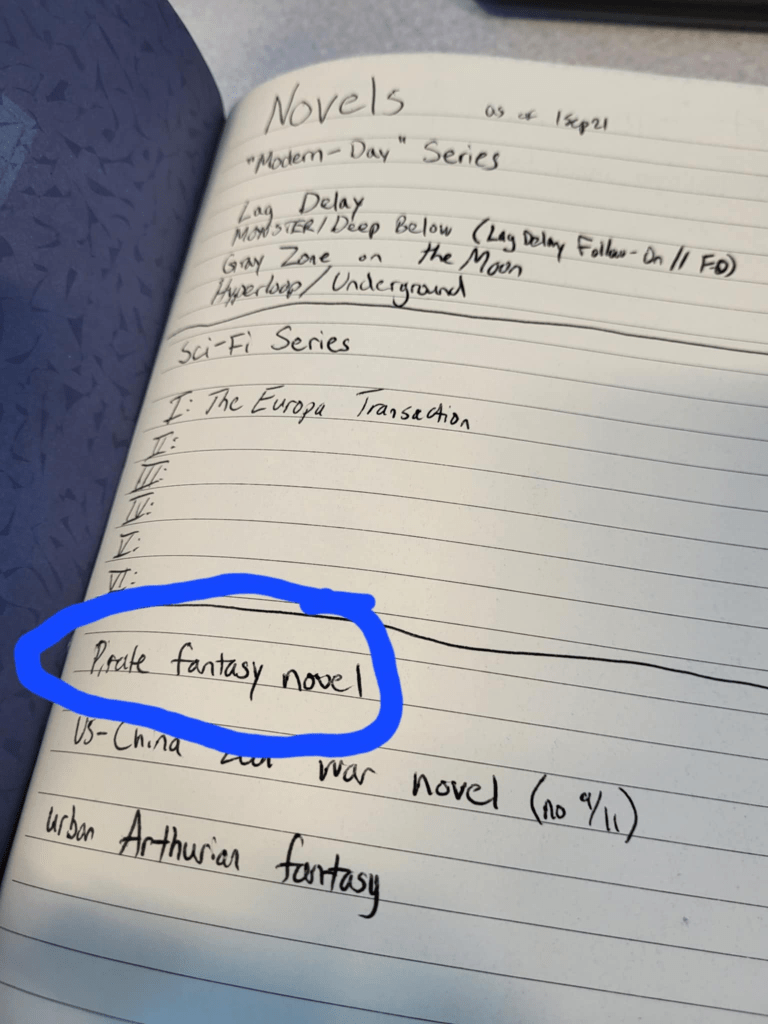 Novels as of 1Sep21
"Modern-Day" Series
Lag Delay
MONSTER/Deep Below (Lag Delay Follow-On // FO)
Gray Zone on the Moon
Hyperloop/Underground
Sci-Fi Series
I: The Europa Transaction
II:
III:
IV:
V:
VI:
Pirate fantasy novel
US-China war novel (no 9/11)
urban Arthurian fantasy